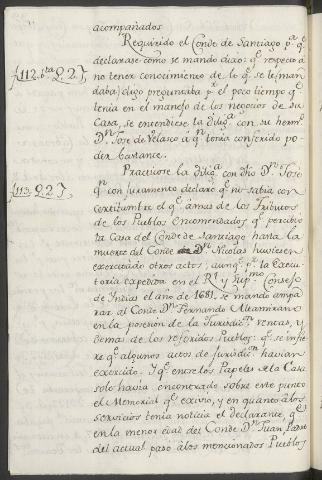 acompañados
Requirido el Conde de Santiago pa. qe.
declarase como se mando dixo: qe. respecto a
f. 112. bta. Q. 2. J. no tener conocimiento de lo qe. se le (man
daba) pregunaba pr. el poco tiempo qe.
tenia en el manejo de los negocios de su
Casa, se entendiese la Dilig.a con su herm.o
Dn. Jose de Velasco à qn. tenia conferido po
der bastante.
Practicose la Dilig.a con dho Dn. Jose
f. 113. Q. 2. J. qn. con juramento declaro qe. ni sabia con
certidumbre el qe. àmas de los Tributos
de los Pueblos Encomendados qe. percibio
la Casa del Conde de Santiago hasta la
muerte del Conde Dn. Nicolas huviesen
exercitado otros actos; aunqe. pr. la Execu
toria expedida en el Rl. y Sup.mo Consejo
de Indias el año de 1681. se mando ampa
rar al Conde Dn. Fernando Altamirano
en la posesion de la Jurisdic.n rentas, y
demas de los referidos Pueblos: qe. se infie
re qe. algunos actos de Jurisdic.n havian
exercido. Y qe. entre los Papeles de la Casa
solo havia encontrado sobre este punto
el Memorial qe. exivio, y en quanto àlos
servicios tenia noticia el declarante, qe.
en la menor edad del Conde Dn. Juan Padre
del actual paso àlos mencionados Pueblos